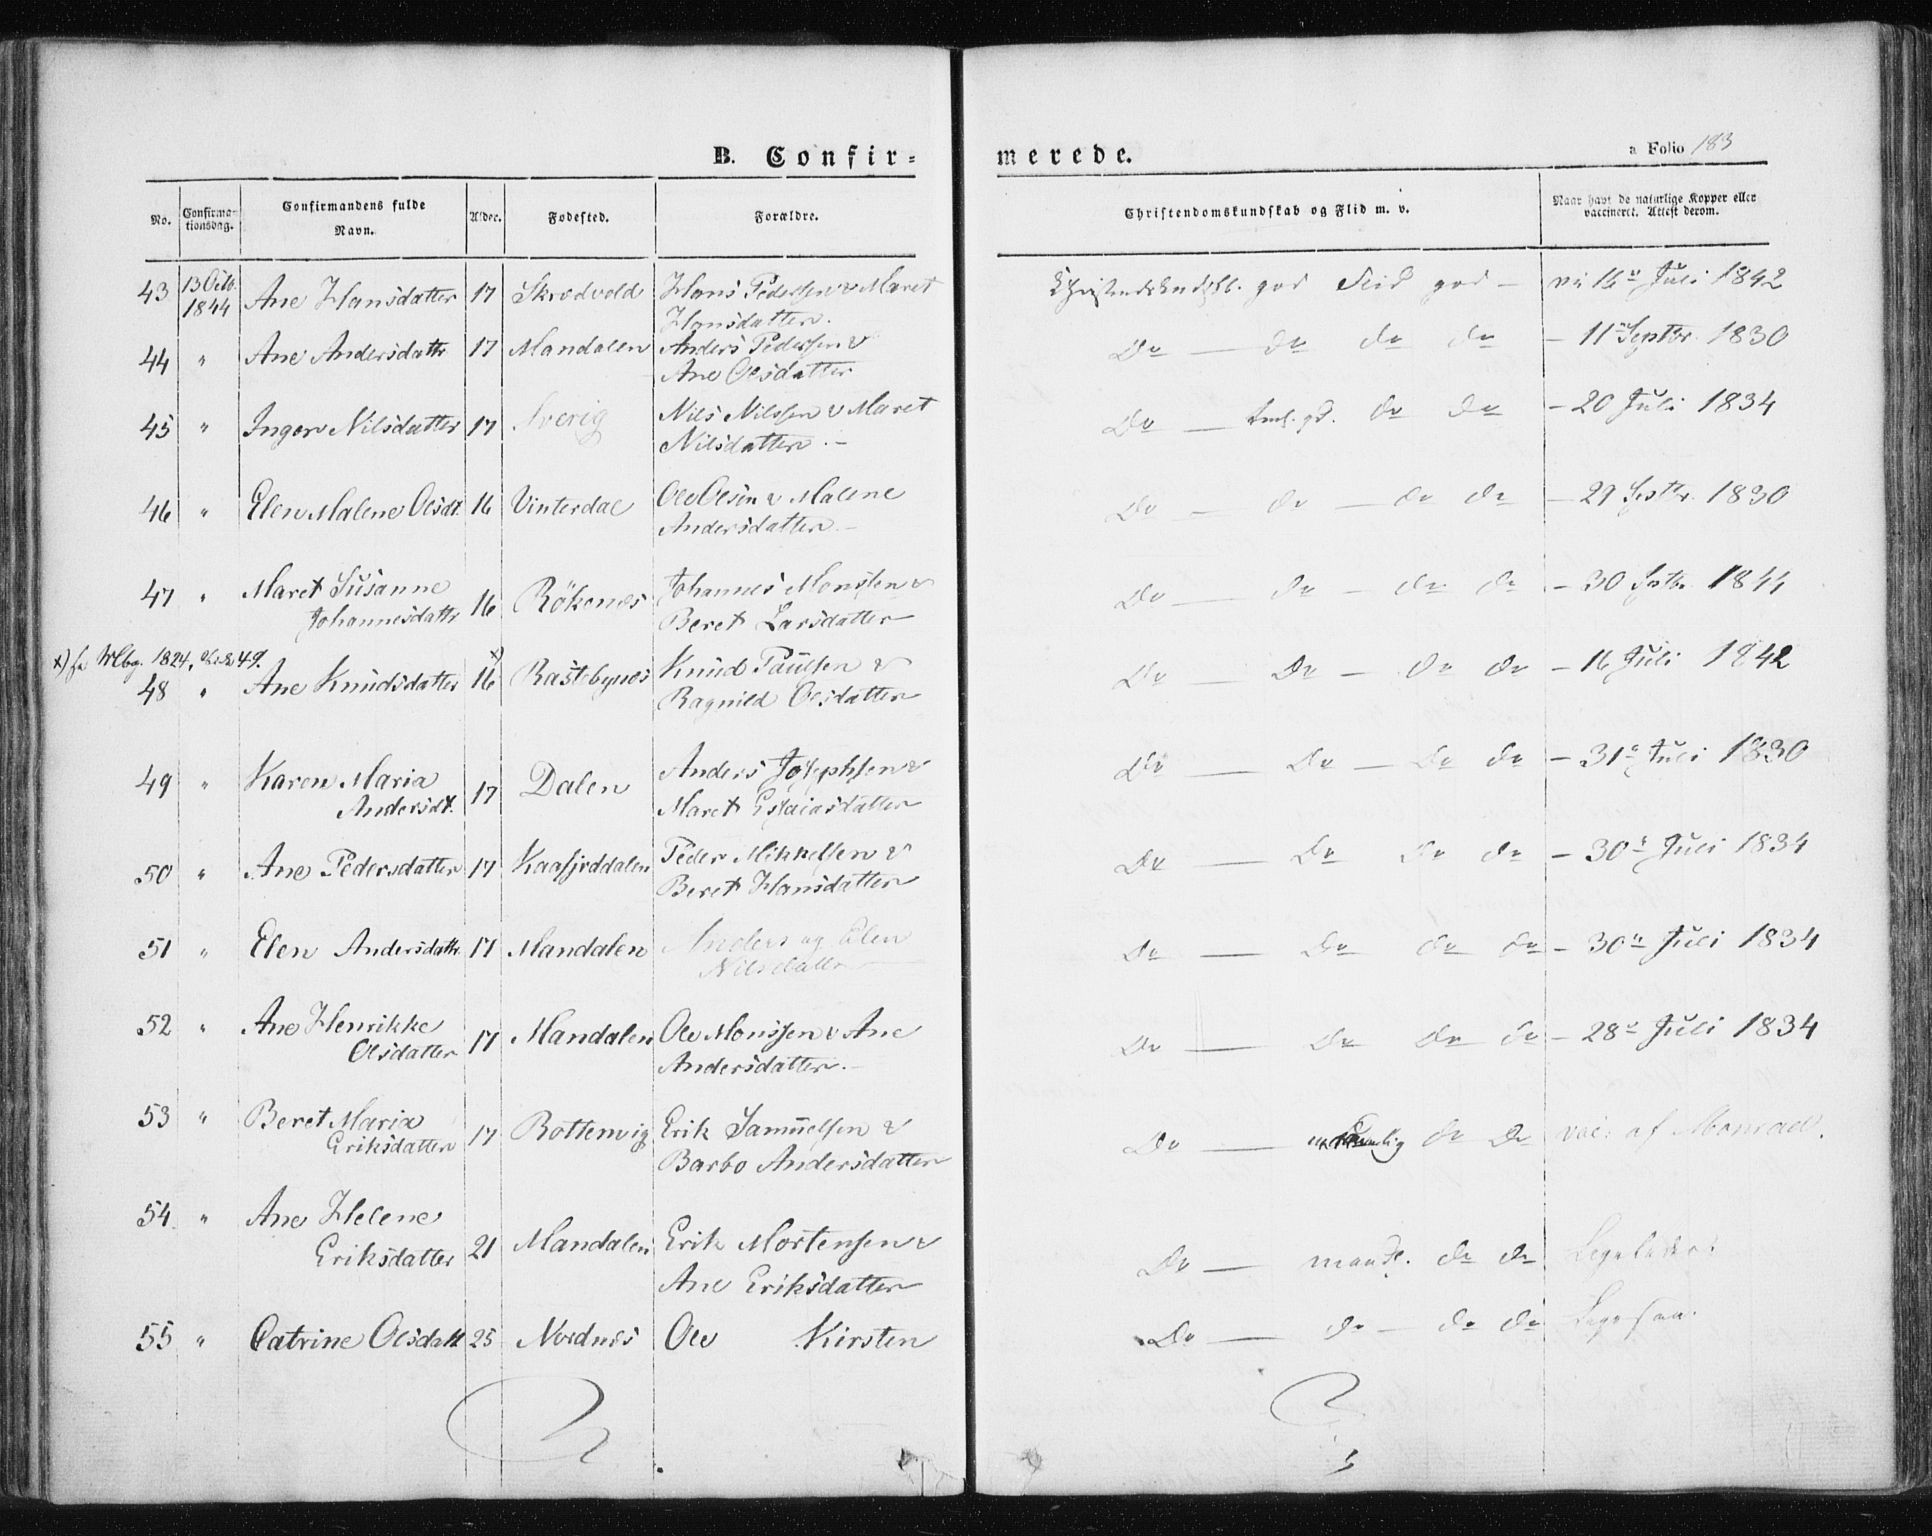 B. Confir-
merede.
a Folio 183
No. Confirma-tionsdag. Confirmandens fulde Navn. Alder. Fødested. Forældre. Christendomskundskab og Flid m. v. Naar havt de naturlige Kopper eller vaccineret. Attest derom.
43 13 Octb. 1844 Ane Hansdatter 17 Skrodvold Hans Pedersen & Maret
Hansdatter.
god Flid god - 16 Juli 1842
44 " Ane Andersdattr 17 Mandalen Anders Pedersen &
Ane Olsdatter
Do — do do do - 11 Septbr. 1830
45 " Inger Nilsdatter 17 Sverig Nils Nilssen & Maret
Nilsdatter. -
Do — do do - 20 Juli 1834
46 " Elen Malene Olsdt. 16 Vinterdal Ole Olsen & Malene
Andersdatter -
Do — do — do do - 29 Septbr. 1830
47 " Maret Susanne
Johannesdattr 16 Rökenes Johannes Monssen &
Beret Larsdatter
Do — do - do do - 30 Septbr. 1844
x) 1824, 49.
48 " Ane Knudsdatter 16 x) Rastebynes Knud Paulsen &
Ragnild Olsdatter
Do — Do — do do - 16 Juli 1842
49 " Karen Maria
Andersdt. 17 Dalen Anders Josephsen &
Maret Esaiasdatter
Do — Do — Do do - 31 Juli 1830
50 " Ane Pedersdatter 17 Kaafjorddalen Peder Mikkelsen &
Beret Hansdatter
Do — Do Do do - 30 Juli 1834
51 " Elen Andersdattr. 17 Mandalen Anders og Elen
Nilsdatter
Do — Do do do - 30 Juli 1834
52 " Ane Henrikke
Olsdatter 17 Mandalen Ole Monssen & Ane
Andersdatter. -
Do — Do Do do - 28 Juli 1834
53 " Beret Maria
Eriksdatter 17 Rottenvig Erik Samuelsen &
Barbo Andersdatter
Do — do Do vac: af Monrad.
54 " Ane Helene
Eriksdatter 21 Mandalen Erik Mortensen &
Ane Eriksdatter
Do — maadl. do do Ligeledes:
55 " Catrine Olsdatt 25 Nordnes Ole Kirsten
Do — do — do do Ligesaa.